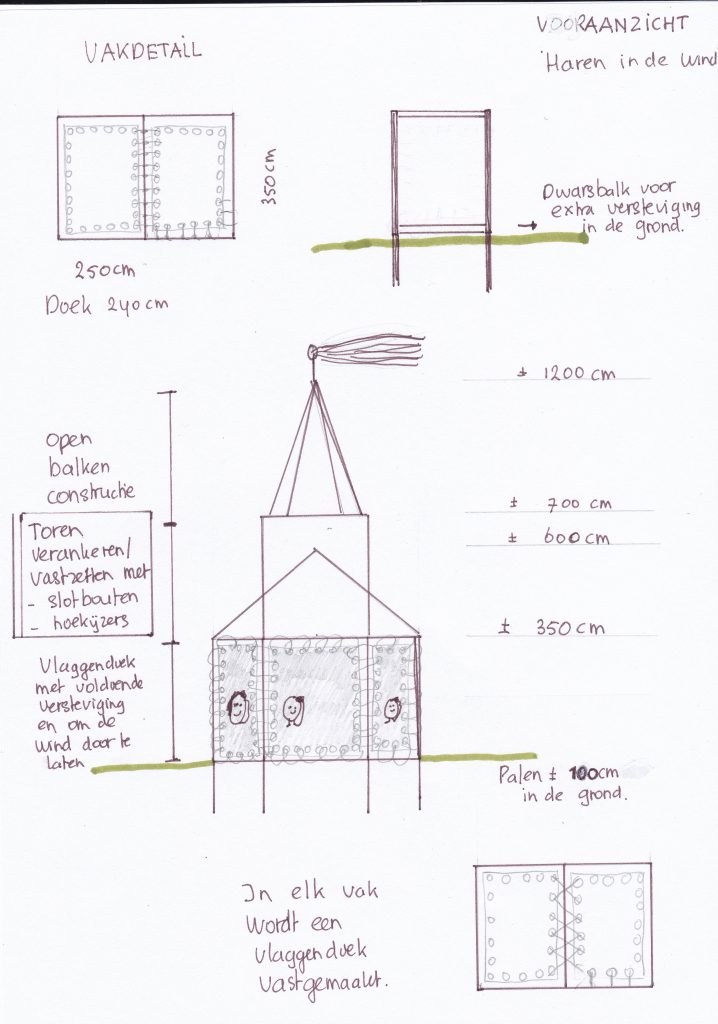 VAKDETAIL
VOORAANZICHT
Haren in de wind
350 cm
Dwarsbalk voor
extra versteviging
in de grond.
250 cm
Doek 240 cm
± 1200 cm
open
balken
constructie
± 700 cm
± 600 cm
Toren
verankeren/
vastzetten met
- slotbouten
- hoekijzers
± 350 cm
Vlaggendoek
met voldoende
versteviging
en om de
wind door te
laten
Palen ± 100 cm
in de grond.
In elk vak
wordt een
vlaggendoek
vastgemaakt.